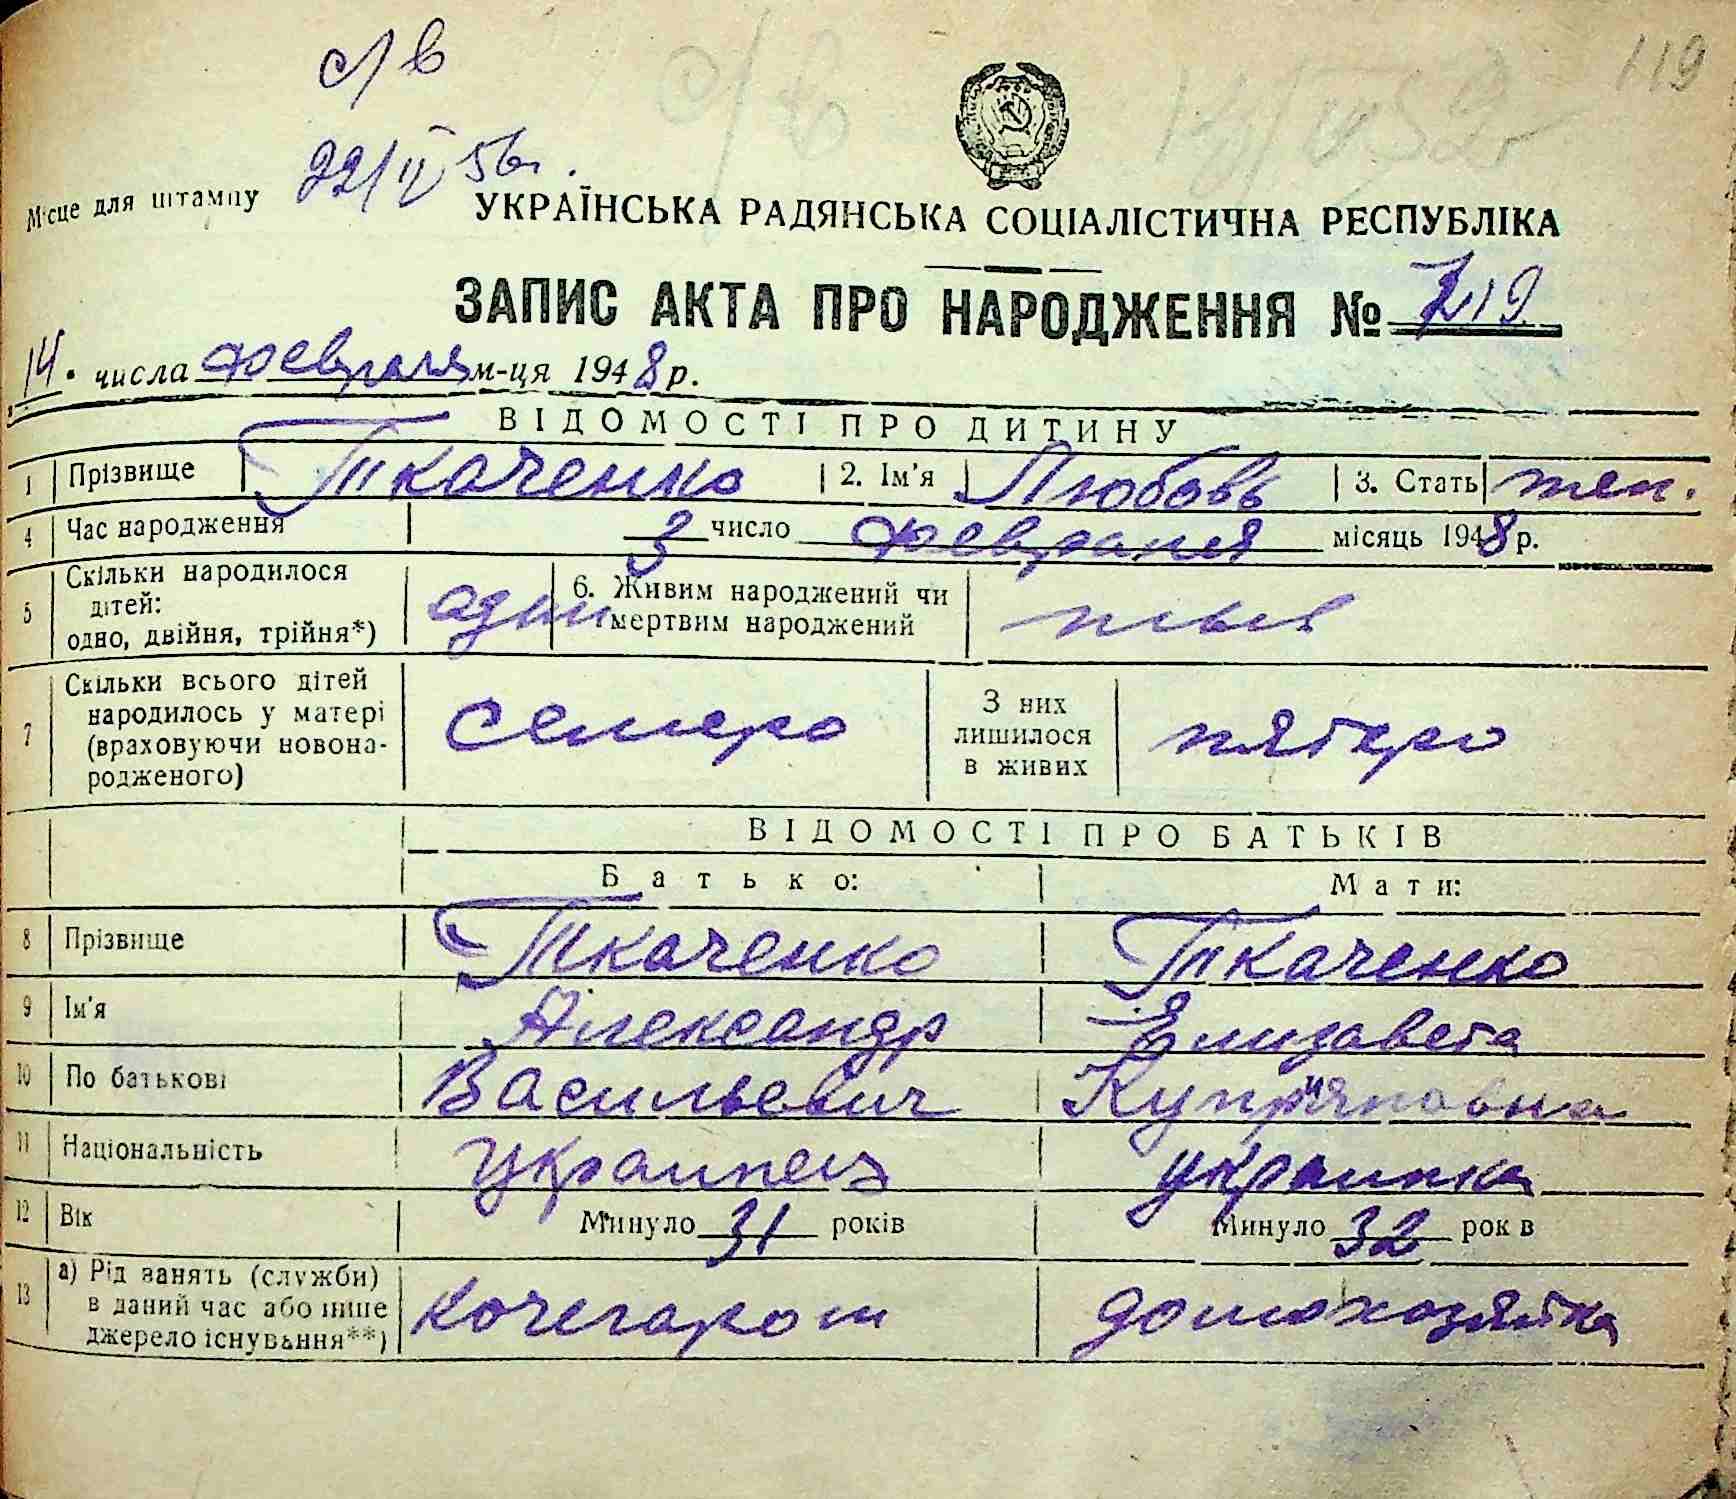 119
с/в
с/в
22/IV 56г.
Місце для штампу
УКРАЇНСЬКА РАДЯНСЬКА СОЦІАЛІСТИЧНА РЕСПУБЛІКА
ЗАПИС АКТА ПРО НАРОДЖЕННЯ № 119
14. числа февраля м-ця 1948 р.
ВІДОМОСТІ ПРО ДИТИНУ
1 Прізвище Ткаченко 2. Ім'я Любовь 3. Стать жен.
4 Час народження 3 число февраля місяць 1948 р.
5 Скільки народилося дітей: одно, двійня, трійня*) один 6. Живим народжений чи мертвим народжений
7 Скільки всього дітей народилось у матері (враховуючи новонародженого) семеро З них лишилося в живих пятеро
ВІДОМОСТІ ПРО БАТЬКІВ
Батько: Мати:
8 Прізвище Ткаченко Ткаченко
9 Ім'я Александр Елизавета
10 По батькові Васильевич Куприяновна
11 Національність украинец украинка
12 Вік Минуло 31 років Минуло 32 років
13 а) Рід занять (служби) в даний час або інше джерело існування**) кочегаром домохозяйка